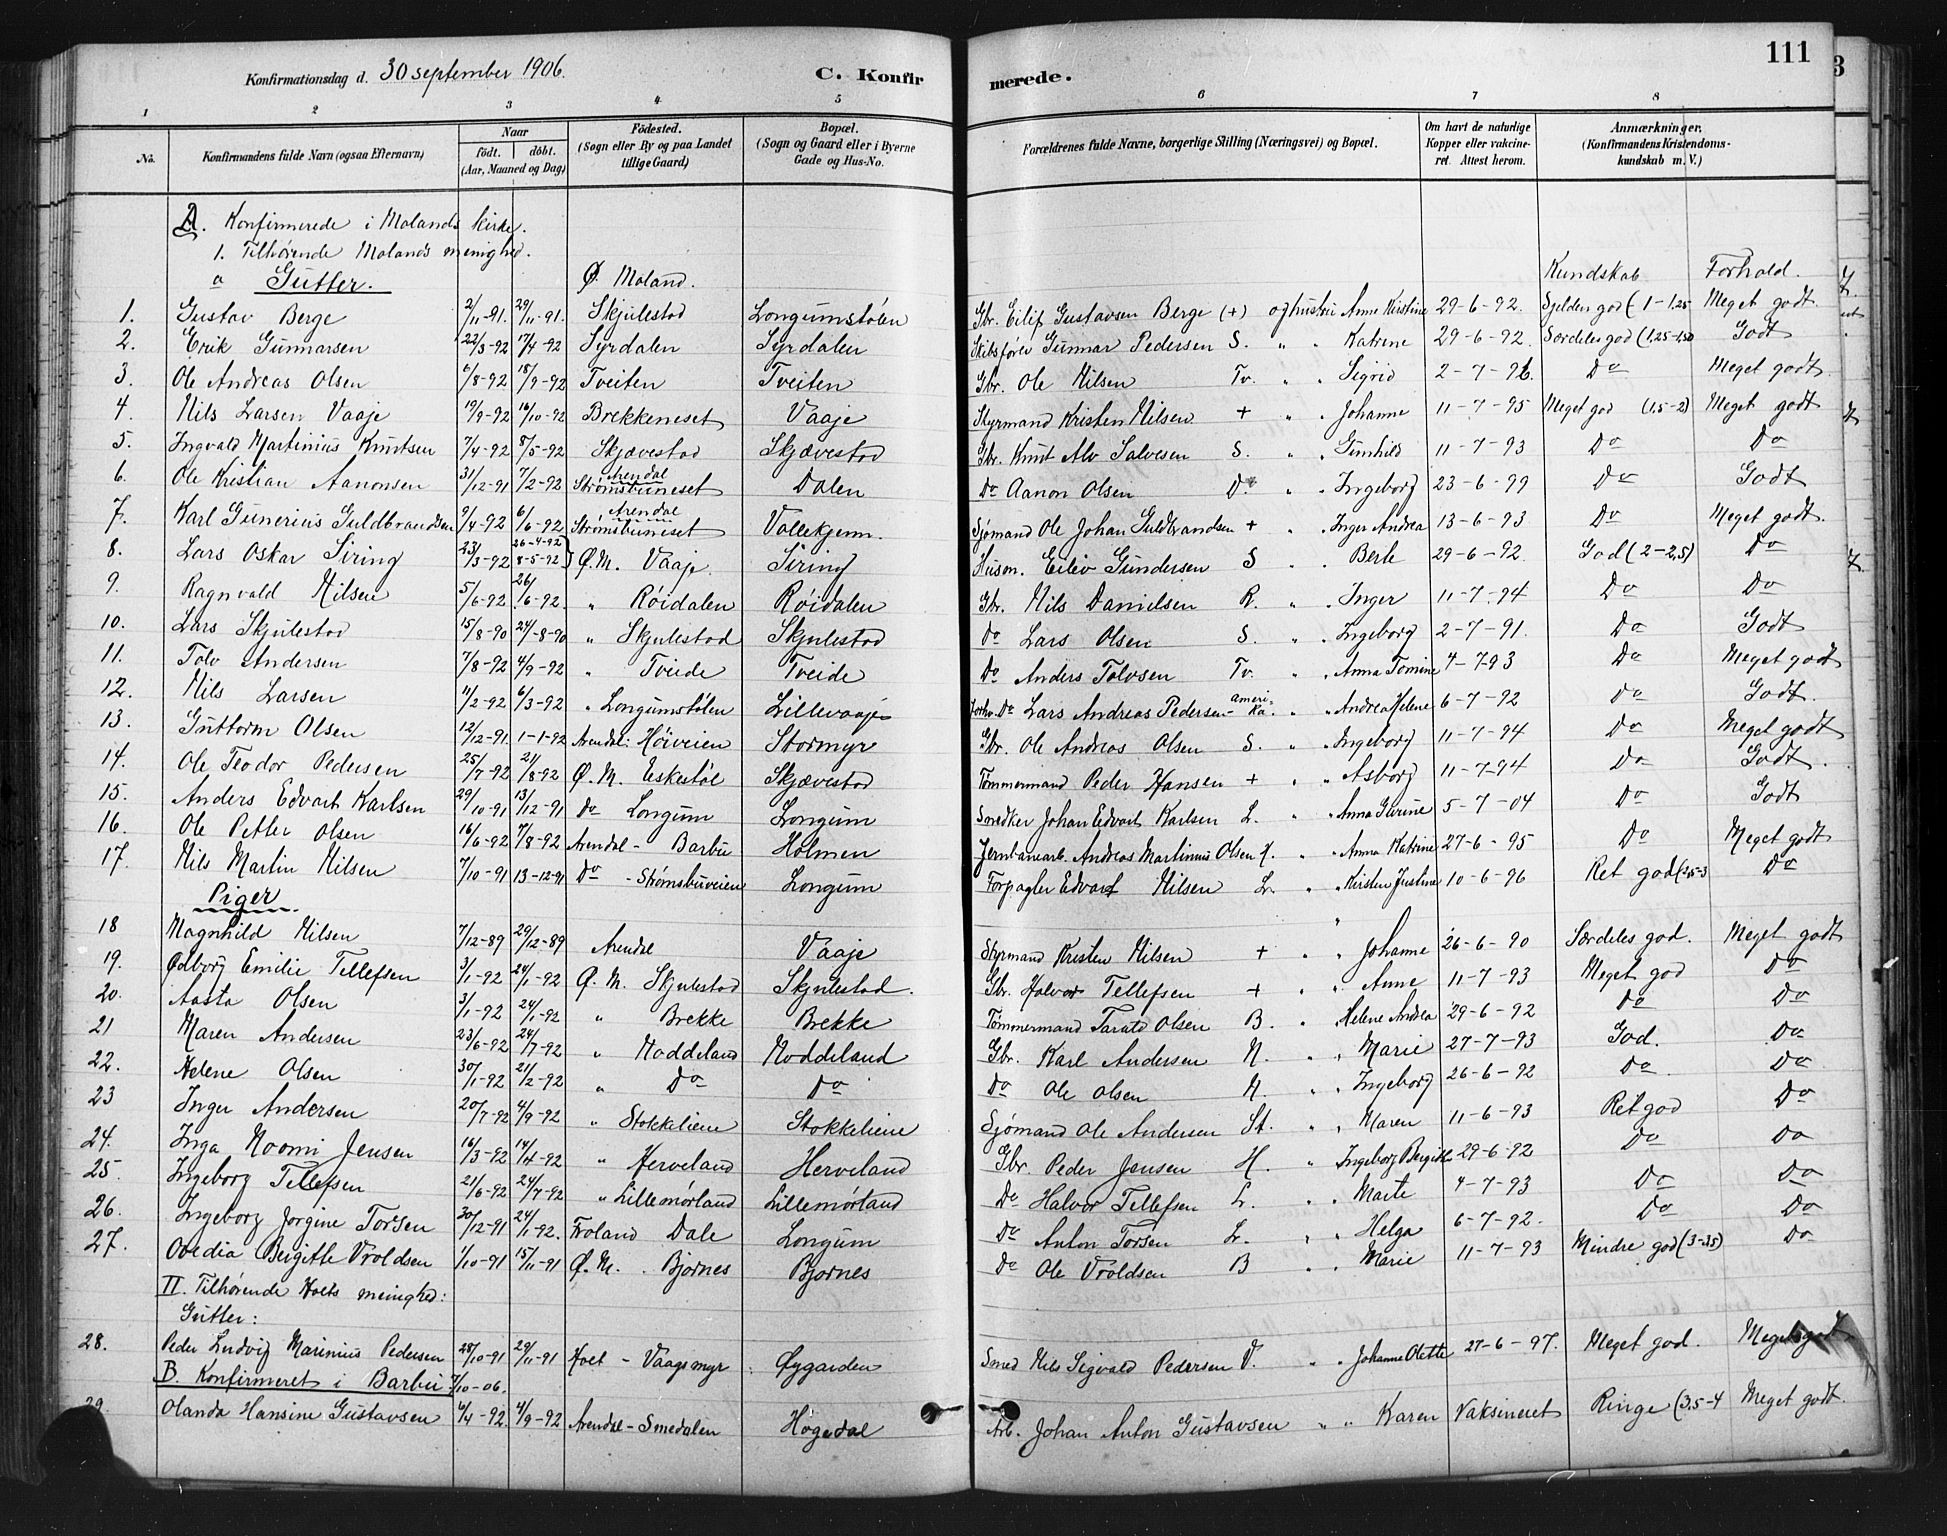 Konfirmationsdag d. 30 september 1906. C. Konfirmerede. 111
1 2 3 4 5 6 7 8
No. Konfirmandens fulde Navn (ogsaa Efternavn) Naar født. døbt. (Aar, Maaned og Dag) Fødested. (Sogn eller By og paa Landet tillige Gaard) Bopæl. (Sogn og Gaard eller i Byerne Gade og Hus-No. Forældrenes fulde Navne, borgerlige Stilling (Næringsvei) og Bopæl. Om havt de naturlige Kopper eller vakcineret. Attest herom. Anmærkninger. (Konfirmandens Kristendomskundskab m. V.)
A. Konfirmerede i Molands kirke.
1. Tilhørende Molands menighed.
a Gutter. Ø. Moland. Kundskab Forhold.
1. Gustav Berge 2/11-91. 29/11-91. Skjulestad Longumstølen Gbr. Eilif Gustavsen Berge (+) og hustru Anne Kirstine 29-6-92. Sjelden god (1-1,25 Meget godt
2. Erik Gunnarsen 22/3-92 17/4-92 Syrdalen Syrdalen Skibsfører Gunnar Pedersen S. " " Katrine 29-6-92. Særdeles god (1,25-1,50 Godt
3. Ole Andreas Olsen 6/8-92 18/9-92 Tveiten Tveiten Gbr. Ole Nilsen Tv. " " Sigrid 2-7-96. Do Meget godt.
4. Nils Larsen Vaaje 19/9-92 16/10-92 Brekkeneset Vaaje Styrmand Kristen Nilsen + " " Johanne 11-7-95 Meget god (1,5-2) Meget godt
5. Ingvald Martinius Knutsen 7/4-92 8/5-92 Skjævestad Skjævestad Gbr. Knut Alv Salvesen S. " " Gunhild 11-7-93 Do Do
6. Ole Kristian Aanonsen 31/12-91 7/2-92 Arendal Strømsbuneset Dalen Do Aanon Olsen D. " " Ingeborg 23-6-99 Do Godt
7. Karl Gunerius Guldbrandsen 9/4-92 6/6-92 Arendal Strømsbuneset Vollekjenn. Sjømand Ole Johan Guldbrandsen + " Inger Andrea 13-6-93 Do Meget godt.
8. Lars Oskar Siring 23/3-92 26-4-92 8-5-92 } Ø.M. Vaaje. Siring Husm. Eilev Gundersen S " Berte 29-6-92. God (2-2,5) Do
9. Ragnvald Nilsen 5/6-92 26/6-92. " Røidalen Røidalen Gbr. Nils Danielsen R. " " Inger 11-7-94 Do Do
10. Lars Skjulestad 15/8-90 24/-8-90 " Skjulestad Skjulestad Do Lars Olsen S. " " Ingeborg 2-7-91. Do Godt
11. Tolv Andersen 7/8-92 4/9-92 " Tveide Tveide Do Anders Tolvsen Tv. " " Anna Tomine 4-7-93 Do Meget godt
12. Nils Larsen 11/2-92 6/3-92 " Longumstølen Lillevaaje Forhv. Do Lars Andreas Pedersen - Amerika. " " Andrea Helene 6-7-92 Do Godt.
13. Guttorm Olsen 12/12-91. 1-1-92 Arendal: Høiveien Stormyr Gbr. Ole Andreas Olsen S. " " Ingeborg 11-7-94 Do Meget godt
14. Ole Teodor Pedersen 25/7-92 21/8-92 Ø. M. Eskestøl Skjævestad Tømmermand Peder Hansen + " " Asborg 11-7-94 Do Godt.
15. Anders Edvart Karlsen 29/10-91 13/12-91 Do Longum Longum Snedker Johan Edvart Karlsen L. " " Anna Gurine 5-7-04 Do Godt
16. Ole Petter Olsen 16/6-92 7/8-92 Arendal - Barbu Holmen Jernbanearb. Andreas Martinius Olsen H. " " Anna Katrine 27-6-95 Do Meget godt
17. Nils Martin Nilsen 7/10-91 13-12-91 Do - Strømsbuveien Longum Forpagter Edvart Nilsen L. " " Kirsten Justine 10-6-96 Ret god (2,5-3 Do
Piger
18 Magnhild Nilsen 7/12-89 29/12-89 Arendal Vaaje Styrmand Kristen Nilsen + " " Johanne 26-6-90 Særdeles god. Meget godt
19. Ødborg Emilie Tellefsen 3/1-92 24/1-92 Ø. M. Skjulestad Skjulestad. Gbr. Halvor Tellefsen + " " Anne 11-7-93 Meget god Do
20. Aasta Olsen 3/1-92 24/1-92 " Brekke Brekke Tømmermand Tarald Olsen B. " Helene Andrea 29-6-92 Do Do
21 Maren Andersen 23/6-92 24/7-92 " Noddeland Noddeland Gbr. Karl Andersen N. " " Marie 27-7-93 God. Do
22. Helene Olsen 30/1-92 21/2-92 " Do Do Do Ole Olsen N. " " Ingeborg 26-6-92 Do Do
23 Inger Andersen 20/7-92 4/9-92 " Stokkeliene Stokkeliene Sjømand Ole Andersen St. " " Maren 11-6-93 Ret god Do
24. Inga Noomi Jensen 16/3-92 14/4-92 " Herveland Herveland Gbr. Peder Jensen H. " Ingeborg Bergitte 29-6-92 Do Do
25. Ingeborg Tellefsen 21/6-92 24/7-92 " Lillemørland Lillemørland Do Halvor Tellefsen L. " " Marte 4-7-93 Do Do
26. Ingeborg Jorgine Torsen 30/12-91 24/1-92. Froland Dale Longum Do Anton Torsen L. " " Helga 6-7-92. Do Do
27. Ovedia Bergitte Vroldsen 1/10-91 15/11-91 Ø. M. . Bjornes Bjornes Do Ole Vroldsen B " " Marie 11-7-93 Mindre god (3-3,5) Do
II. Tilhørende Holts menighed:
Gutter:
28. Peder Ludvig Marinius Pedersen 28/10-91 29/11-91 Holt - Vaagsmyr Øygarden Smed Nils Sigvald Pedersen V. " " Johanne Olette 27-6-97. Meget god. Meget godt
B. Konfirmeret i Barbu 7/10-06.
29 Olanda Hansine Gustavsen 6/4-92. 4/9-92 Arendal - Smedalen Høgedal Arb. Johan Anton Gustavsen " " Karen Vaksineret Ringe (3,5-4 Meget godt.